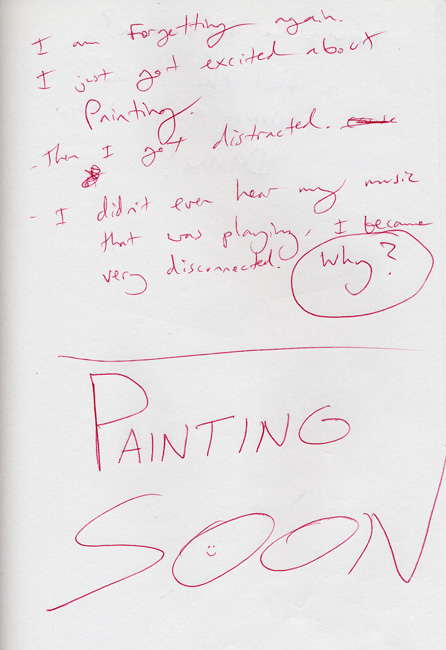 I am Forgetting again.
I just got excited about
Painting.
- Then I got distracted.
- I didn't even hear my music
that was playing, I became
very disconnected. Why?
PAINTING
SOON